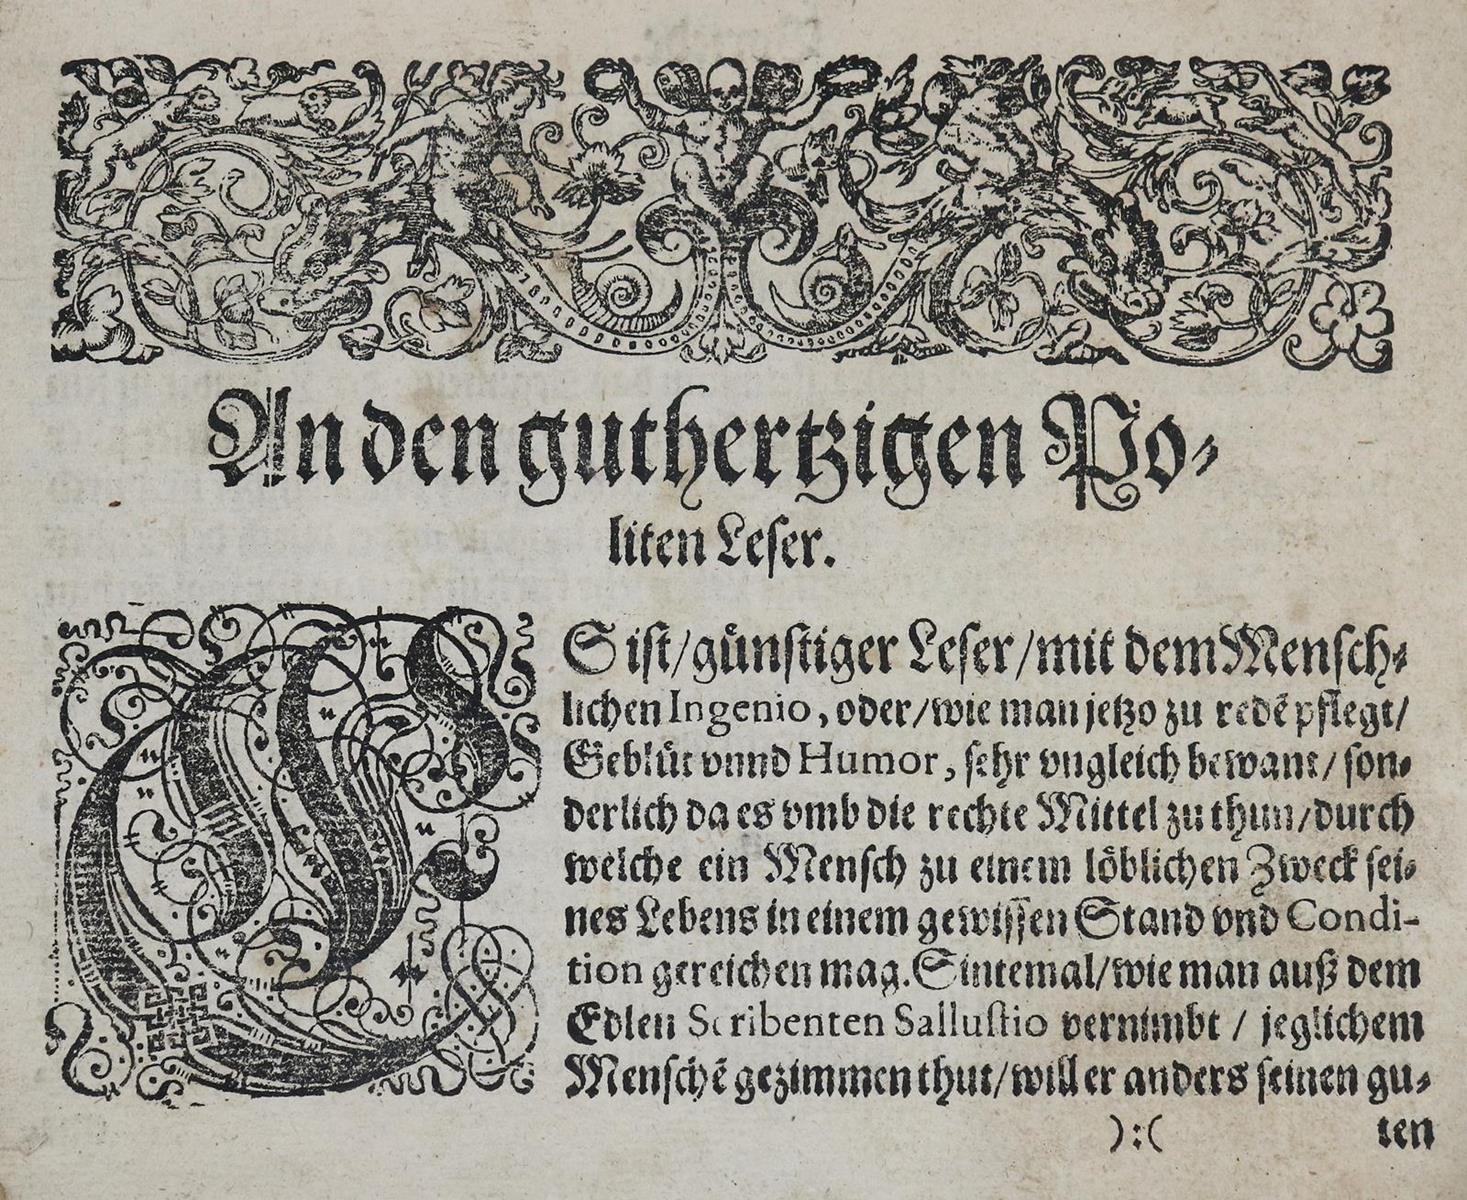 An den guthertzigen Po-
liten Leser.
ES ist/günstiger Leser/mit dem Mensch-
lichen Ingenio, oder/wie man jetzo zu redẽ pflegt/
Geblüt vnnd Humor, sehr vngleich bewant/ son-
derlich da es vmb die rechte Mittel zu thun/durch
welche ein Mensch zu einem löblichen Zweck sei-
nes Lebens in einem gewissen Stand vnd Condi-
tion gereichen mag. Sintemal/wie man auß dem
Edlen Scribenten Sallustio vernimbt / jeglichem
Menschẽ gezimmen thut/will er anders seinen gu-
):( ten